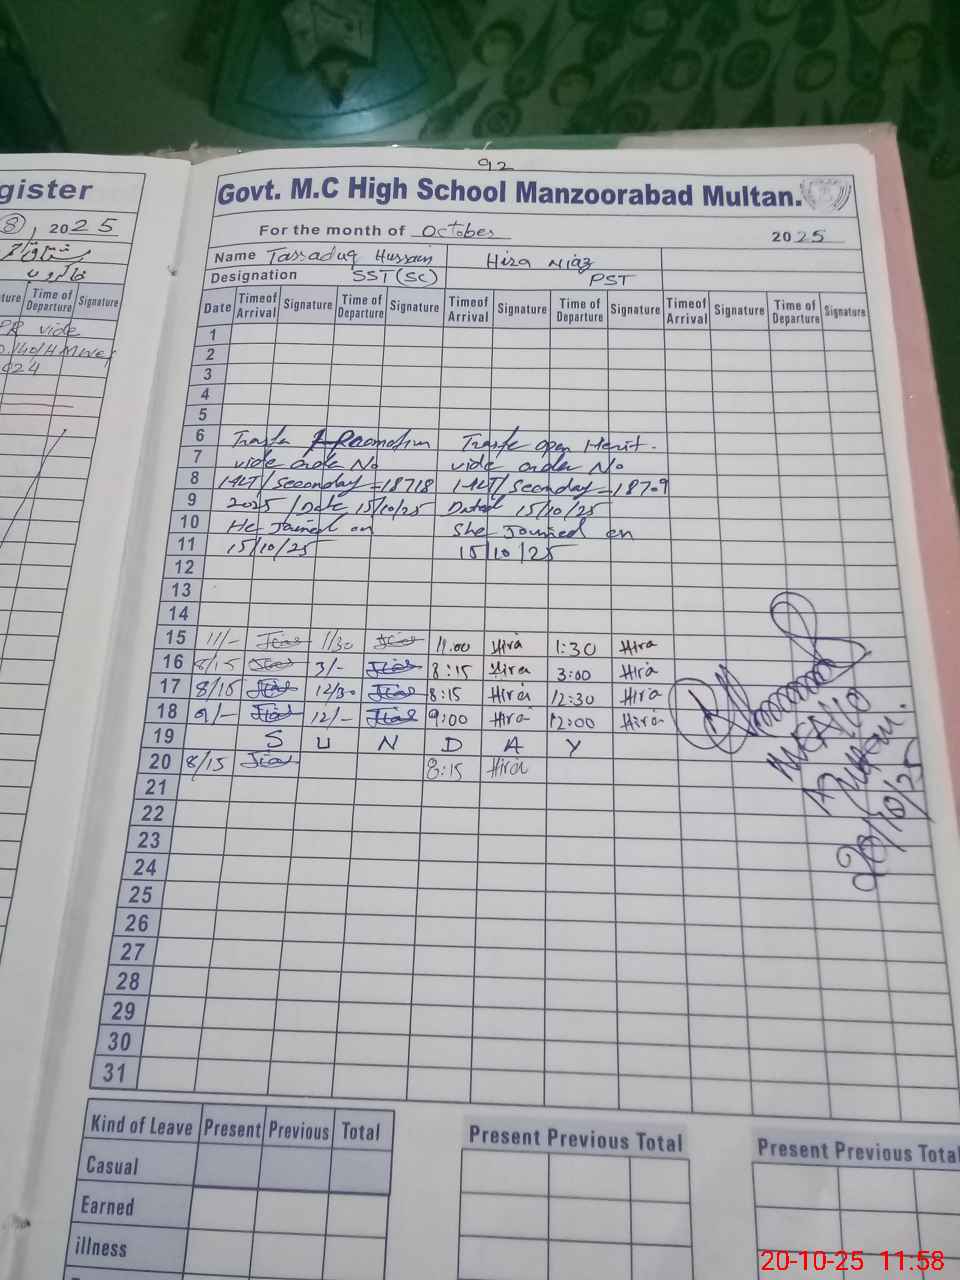 gister
8, 2025
ture Time of Departure Signature
PR vide
024
92
Govt. M.C High School Manzoorabad Multan.
For the month of October 2025
Name Tassaduq Hussain Hira Niaz
Designation SST (SC) PST
Date Timeof Arrival Signature Time of Departure Signature Timeof Arrival Signature Time of Departure Signature Timeof Arrival Signature Time of Departure Signature
1
2
3
4
5
6
7
8
9
10
11
12
13
14
vide order No
MLT/Seconday=18718
2025 / Date 15/10/25
He Joined on
15/10/25
open Merit.
vide order No
MLT/Seconday=18709
Dated 15/10/25
She Joined on
15/10/25
15 11/- 1/30 11.00 Hira 1:30 Hira
16 8/15 3/- 8:15 Hira 3:00 Hira
17 8/15 12/30 8:15 Hira 12:30 Hira
18 9/- 12/- 9:00 Hira 12:00 Hira
19 S U N D A Y
20 8/15 8:15 Hira
21
22
23
24
25
26
27
28
29
30
31
20/10/25
Kind of Leave Present Previous Total
Casual
Earned
illness
Present Previous Total
Present Previous Total
20-10-25 11:58